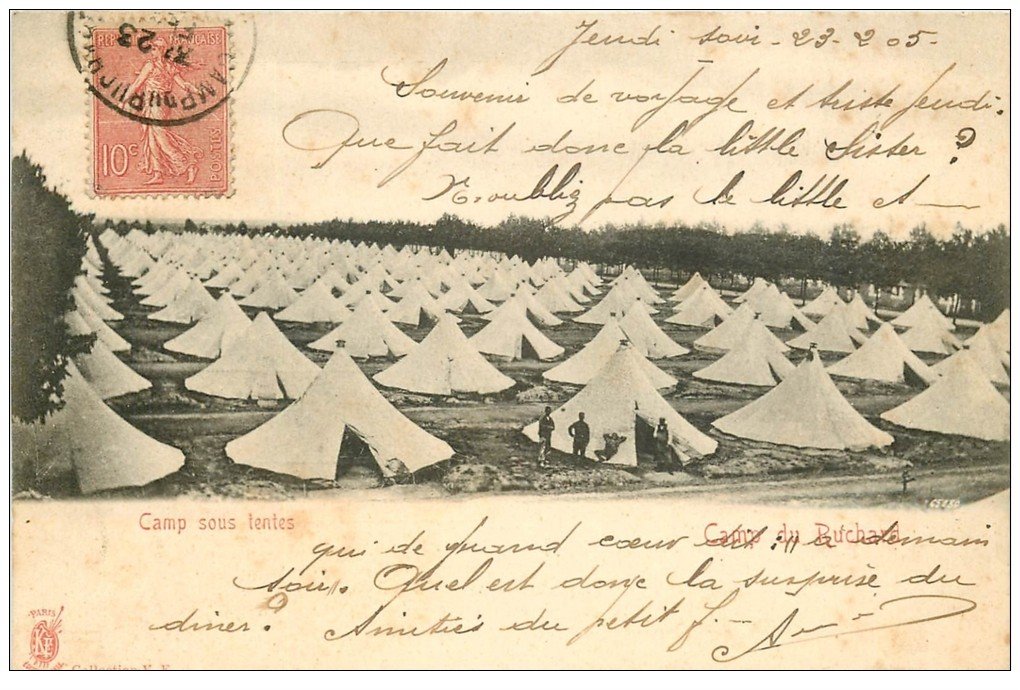 CAMP DU RUCHARD
23
RÉPUBLIQUE FRANÇAISE
10c
POSTES
Jeudi soir - 23-2 05-
Souvenir de voyage et triste Jeudi.
Que fait donc la little Sister ?
N'oubliz pas le little et —
Camp sous tentes
Camp du Ruchard
qui de grand cœur dit : "à demain
soir. Quel est donc la surprise du
diner ? Amitiés du petit f. —
PARIS
Collection